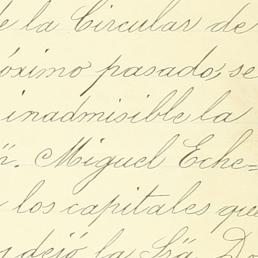 e la Circular de
óximo pasado, se
inadmisible la
n. Miguel Eche=
los capitales que
dejó la Sã. Do